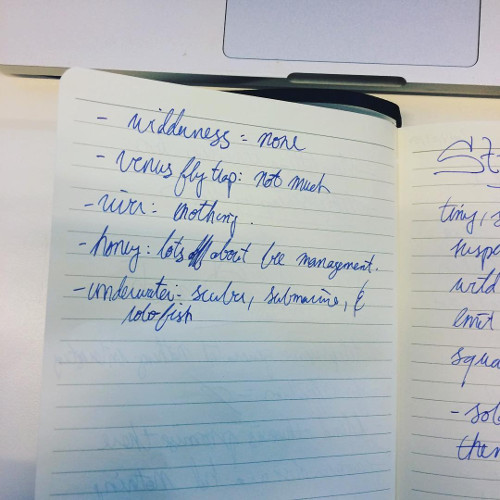 - wilderness = none
- venus fly trap: not much
- river: nothing.
- honey: lots about bee management.
- underwater: scuba, submarine, &
robofish
St
tiny, s
suspa
wild
emit
squa
- sol
then